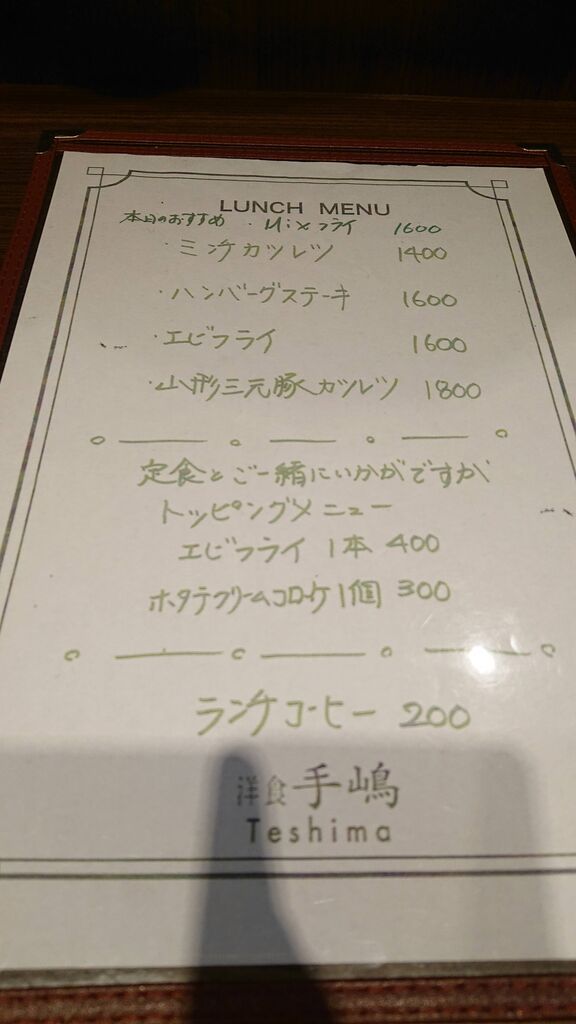 LUNCH MENU
本日のおすすめ ・Mixフライ 1600
・ミンチカツレツ 1400
・ハンバーグステーキ 1600
・エビフライ 1600
・山形三元豚カツレツ 1800
定食とご一緒にいかがですか
トッピングメニュー
エビフライ 1本 400
ホタテクリームコロッケ 1個 300
ランチコーヒー 200
洋食 手嶋
Teshima